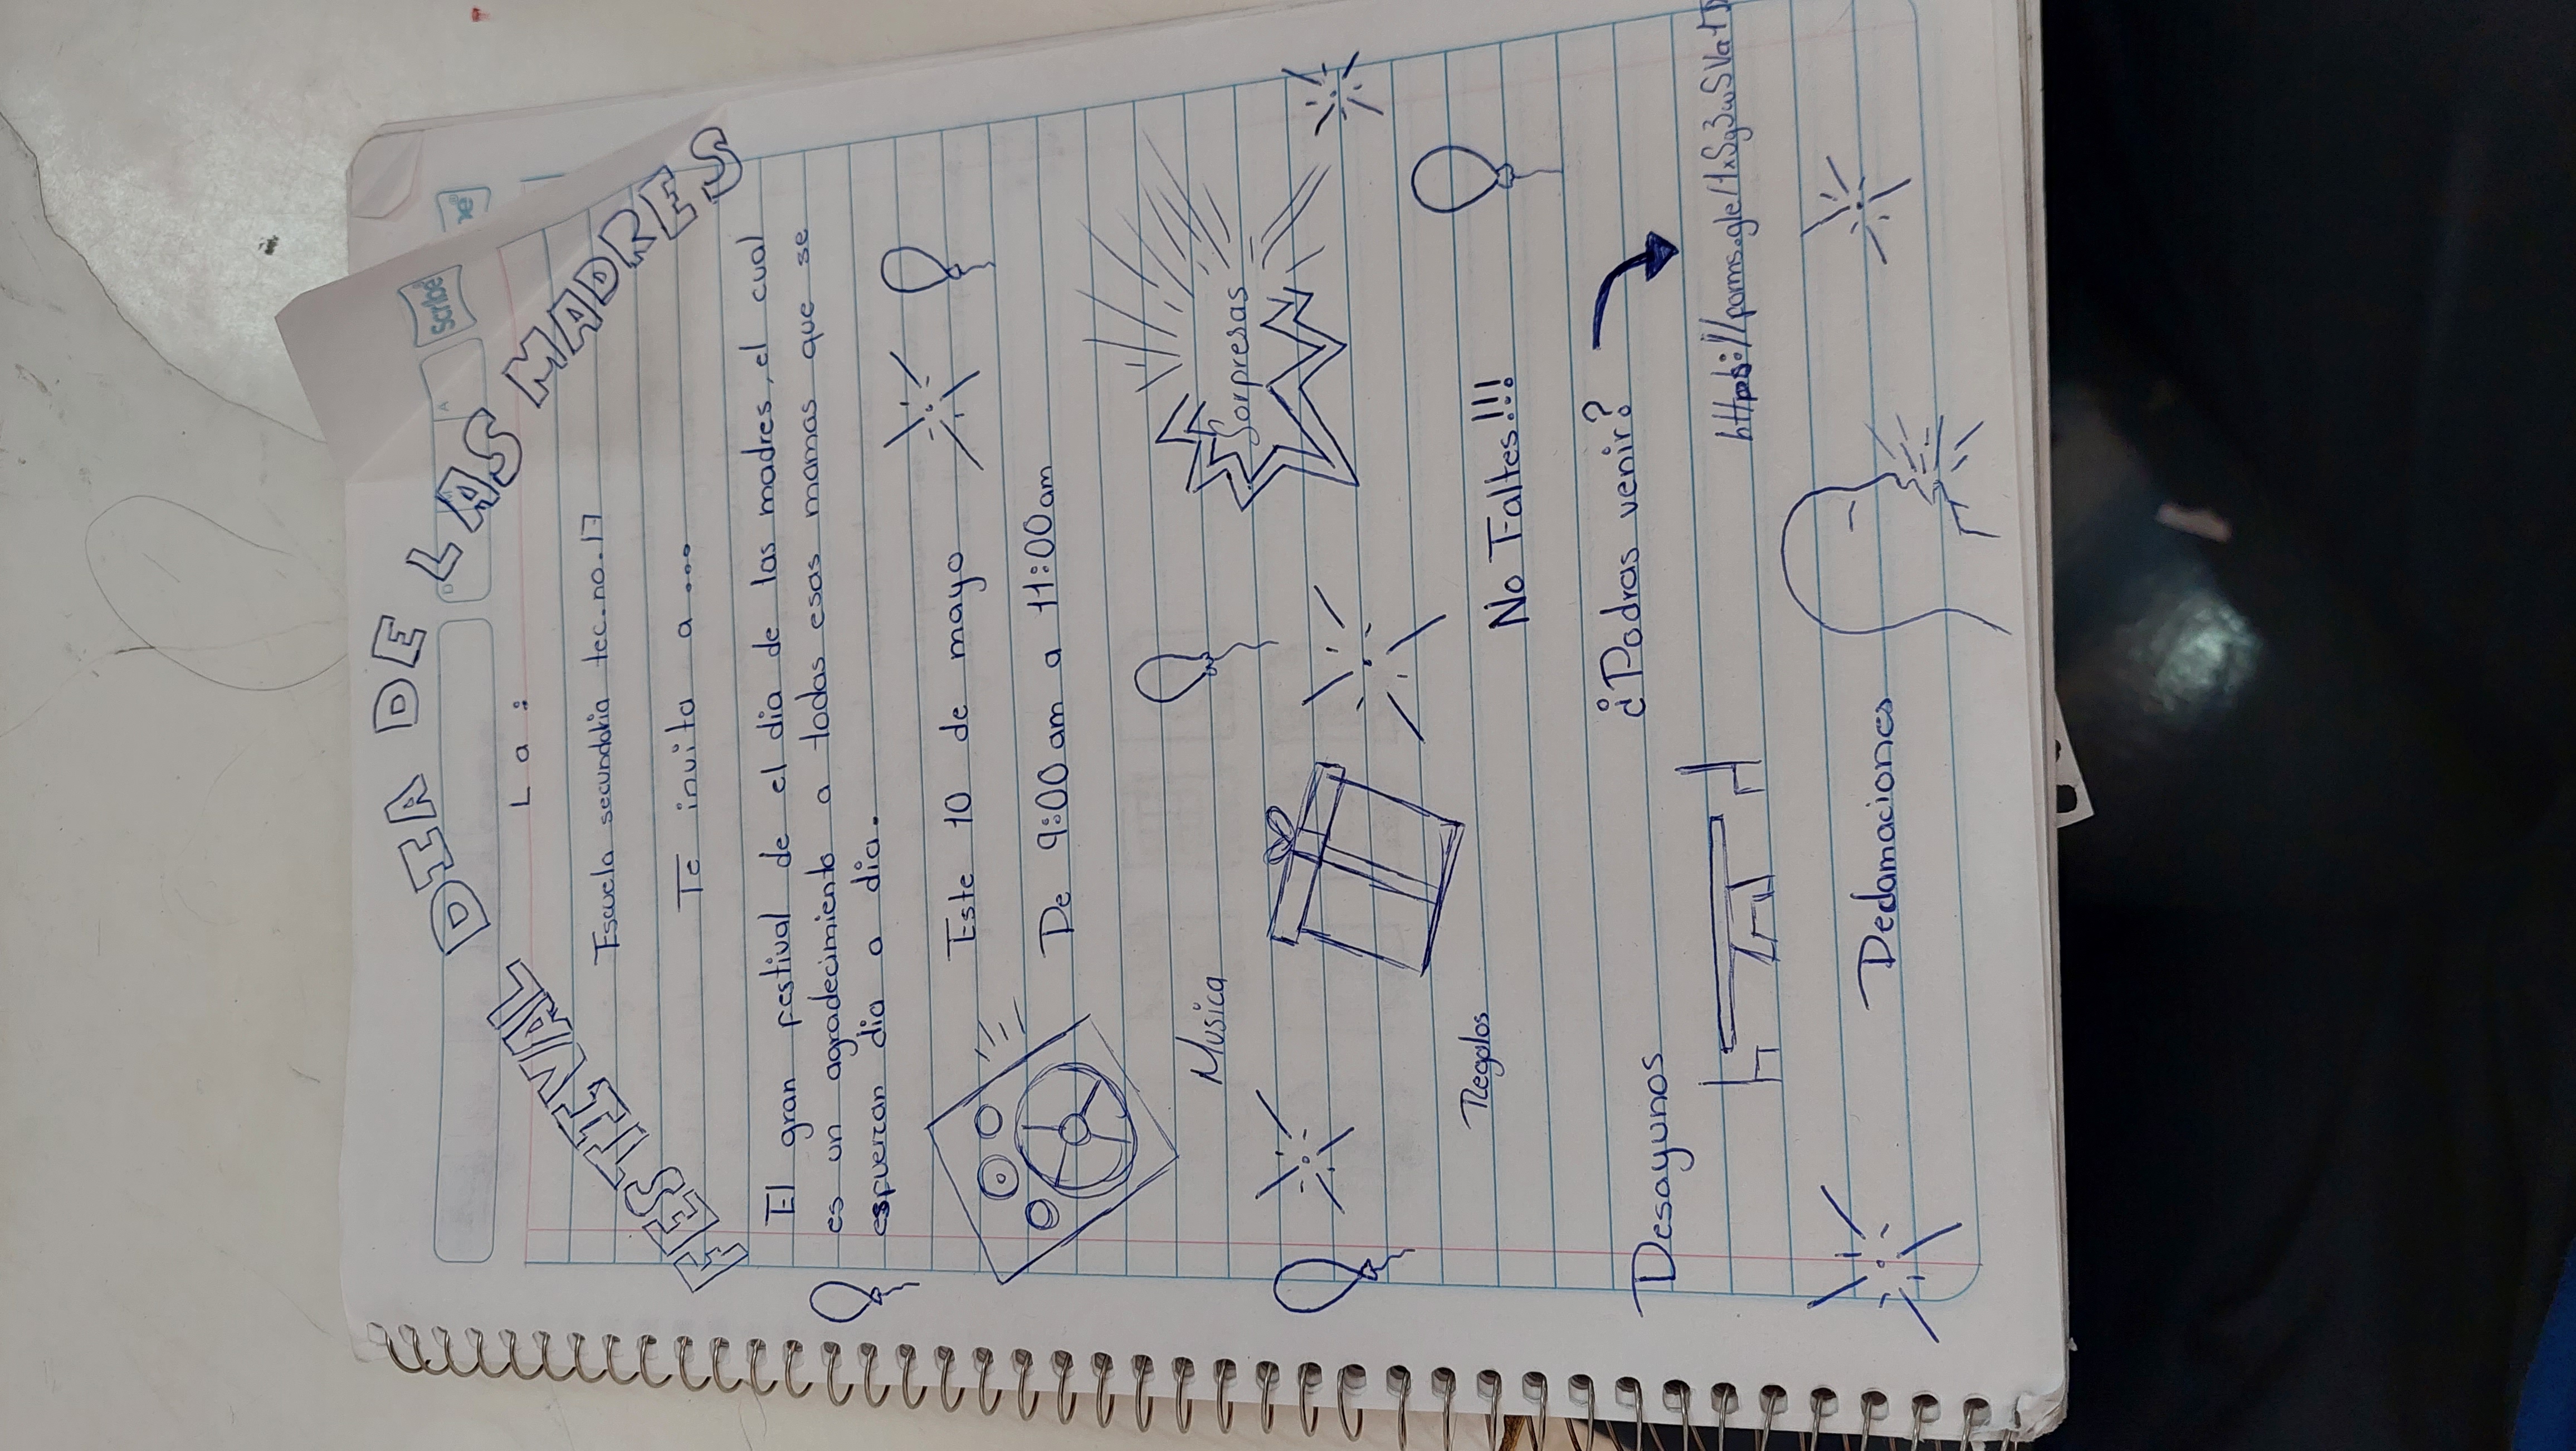 FESTIVAL DIA DE LAS MADRES
Scribe
La:
Escuela secundaria tec.no.17
Te invita a...
El gran festival de el dia de las madres, el cual
es un agradecimiento a todas esas mamas que se
esfuerzan dia a dia.
Este 10 de mayo
De 9:00 am a 11:00 am
Musica
Sorpresas
Regalos
No Faltes!!!
¿Podras venir?
Desayunos
Declamaciones